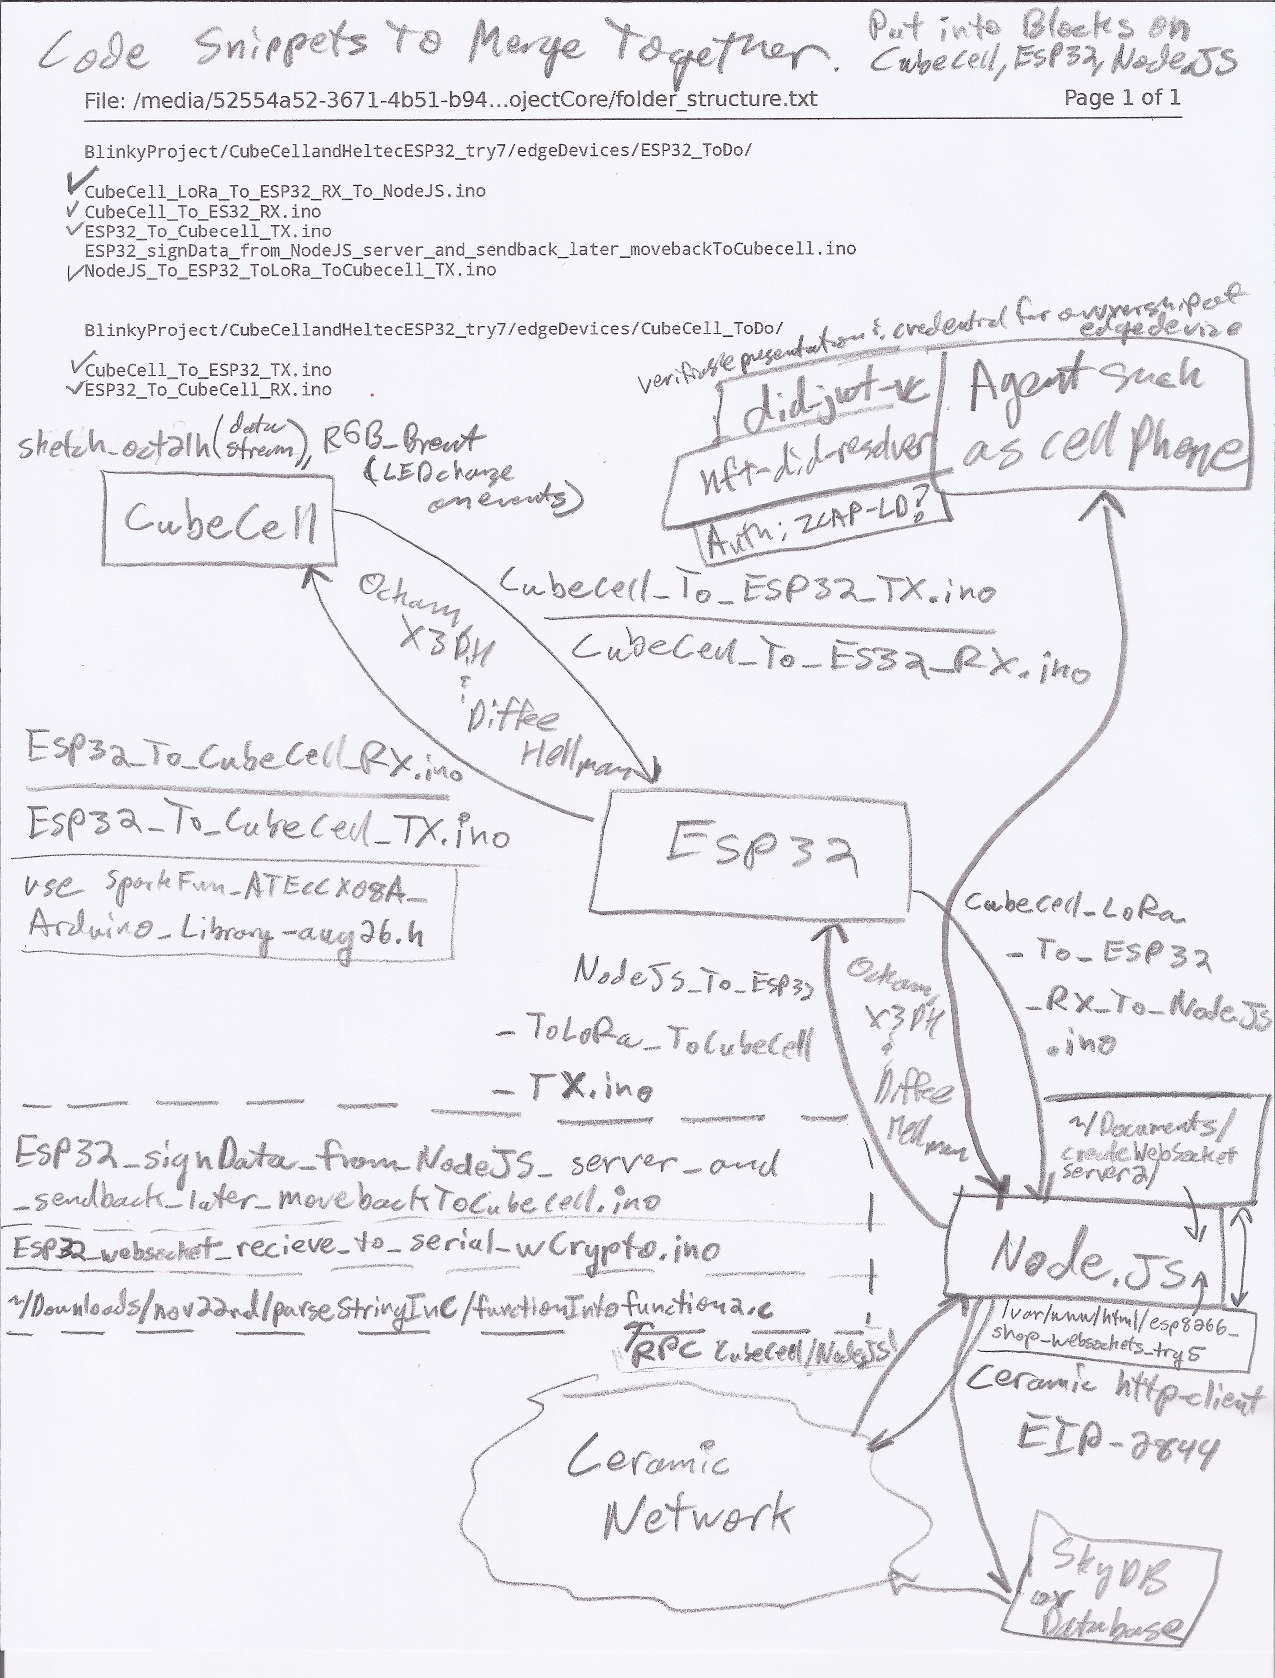 Code Snippets To Merge Together.
Put into Blocks on
CubeCell, ESP32, Node.JS
File: /media/52554a52-3671-4b51-b94...ojectCore/folder_structure.txt
Page 1 of 1
BlinkyProject/CubeCellandHeltecESP32_try7/edgeDevices/ESP32_ToDo/
CubeCell_LoRa_To_ESP32_RX_To_NodeJS.ino
CubeCell_To_ES32_RX.ino
ESP32_To_Cubecell_TX.ino
ESP32_signData_from_NodeJS_server_and_sendback_later_movebackToCubecell.ino
NodeJS_To_ESP32_ToLoRa_ToCubecell_TX.ino
BlinkyProject/CubeCellandHeltecESP32_try7/edgeDevices/CubeCell_ToDo/
CubeCell_To_ESP32_TX.ino
ESP32_To_CubeCell_RX.ino
verifiable presentation & credential for ownership of
edge device
did-jwt-vc
nft-did-resolver
Auth; ZCAP-LD?
Agent such
as cell phone
(data
stream),
RGB
(LED change
on events)
CubeCell
Ockam,
X3DH
&
Diffee
Hellman
Cubecell_To_ESP32_TX.ino
CubeCell_To_ES32_RX.ino
ESP32_To_CubeCell_RX.ino
ESP32_To_CubeCell_TX.ino
use SparkFun_ATECCX08A_
Arduino_Library-aug26.h
ESP32
Cubecell_LoRa
_To_ESP32
_RX_To_NodeJS
.ino
NodeJS_To_ESP32
_ToLoRa_ToCubeCell
_TX.ino
Ockam,
X3DH
&
Diffee
Hellman
~/Documents/
createWebSocket
server2/
ESP32_signData_from_NodeJS_server_and
_sendback_later_movebackToCubecell.ino
ESP32_websocket_recieve_to_serial_wCrypto.ino
~/Downloads/nov22nd/parseStringInC/functionIntofunction2.c
RPC CubeCell/NodeJS
Node.JS
/var/www/html/esp8266_
shop-websockets_try5
Ceramic http-client
EIP-2844
Ceramic
Network
SkyDB
or
Database